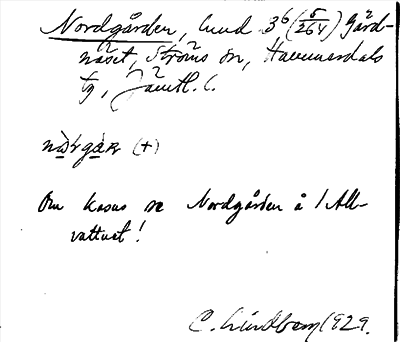 Nordgården, hmd 3⁶ (5/264) Gård-
näset, Ströms sn, Hammerdals
tg, Jämtl. l.
nò̱rga̱ɴ (+)
Om kasus se Nordgården å 1 All-
vattnet!
C. Lindberg 1929.